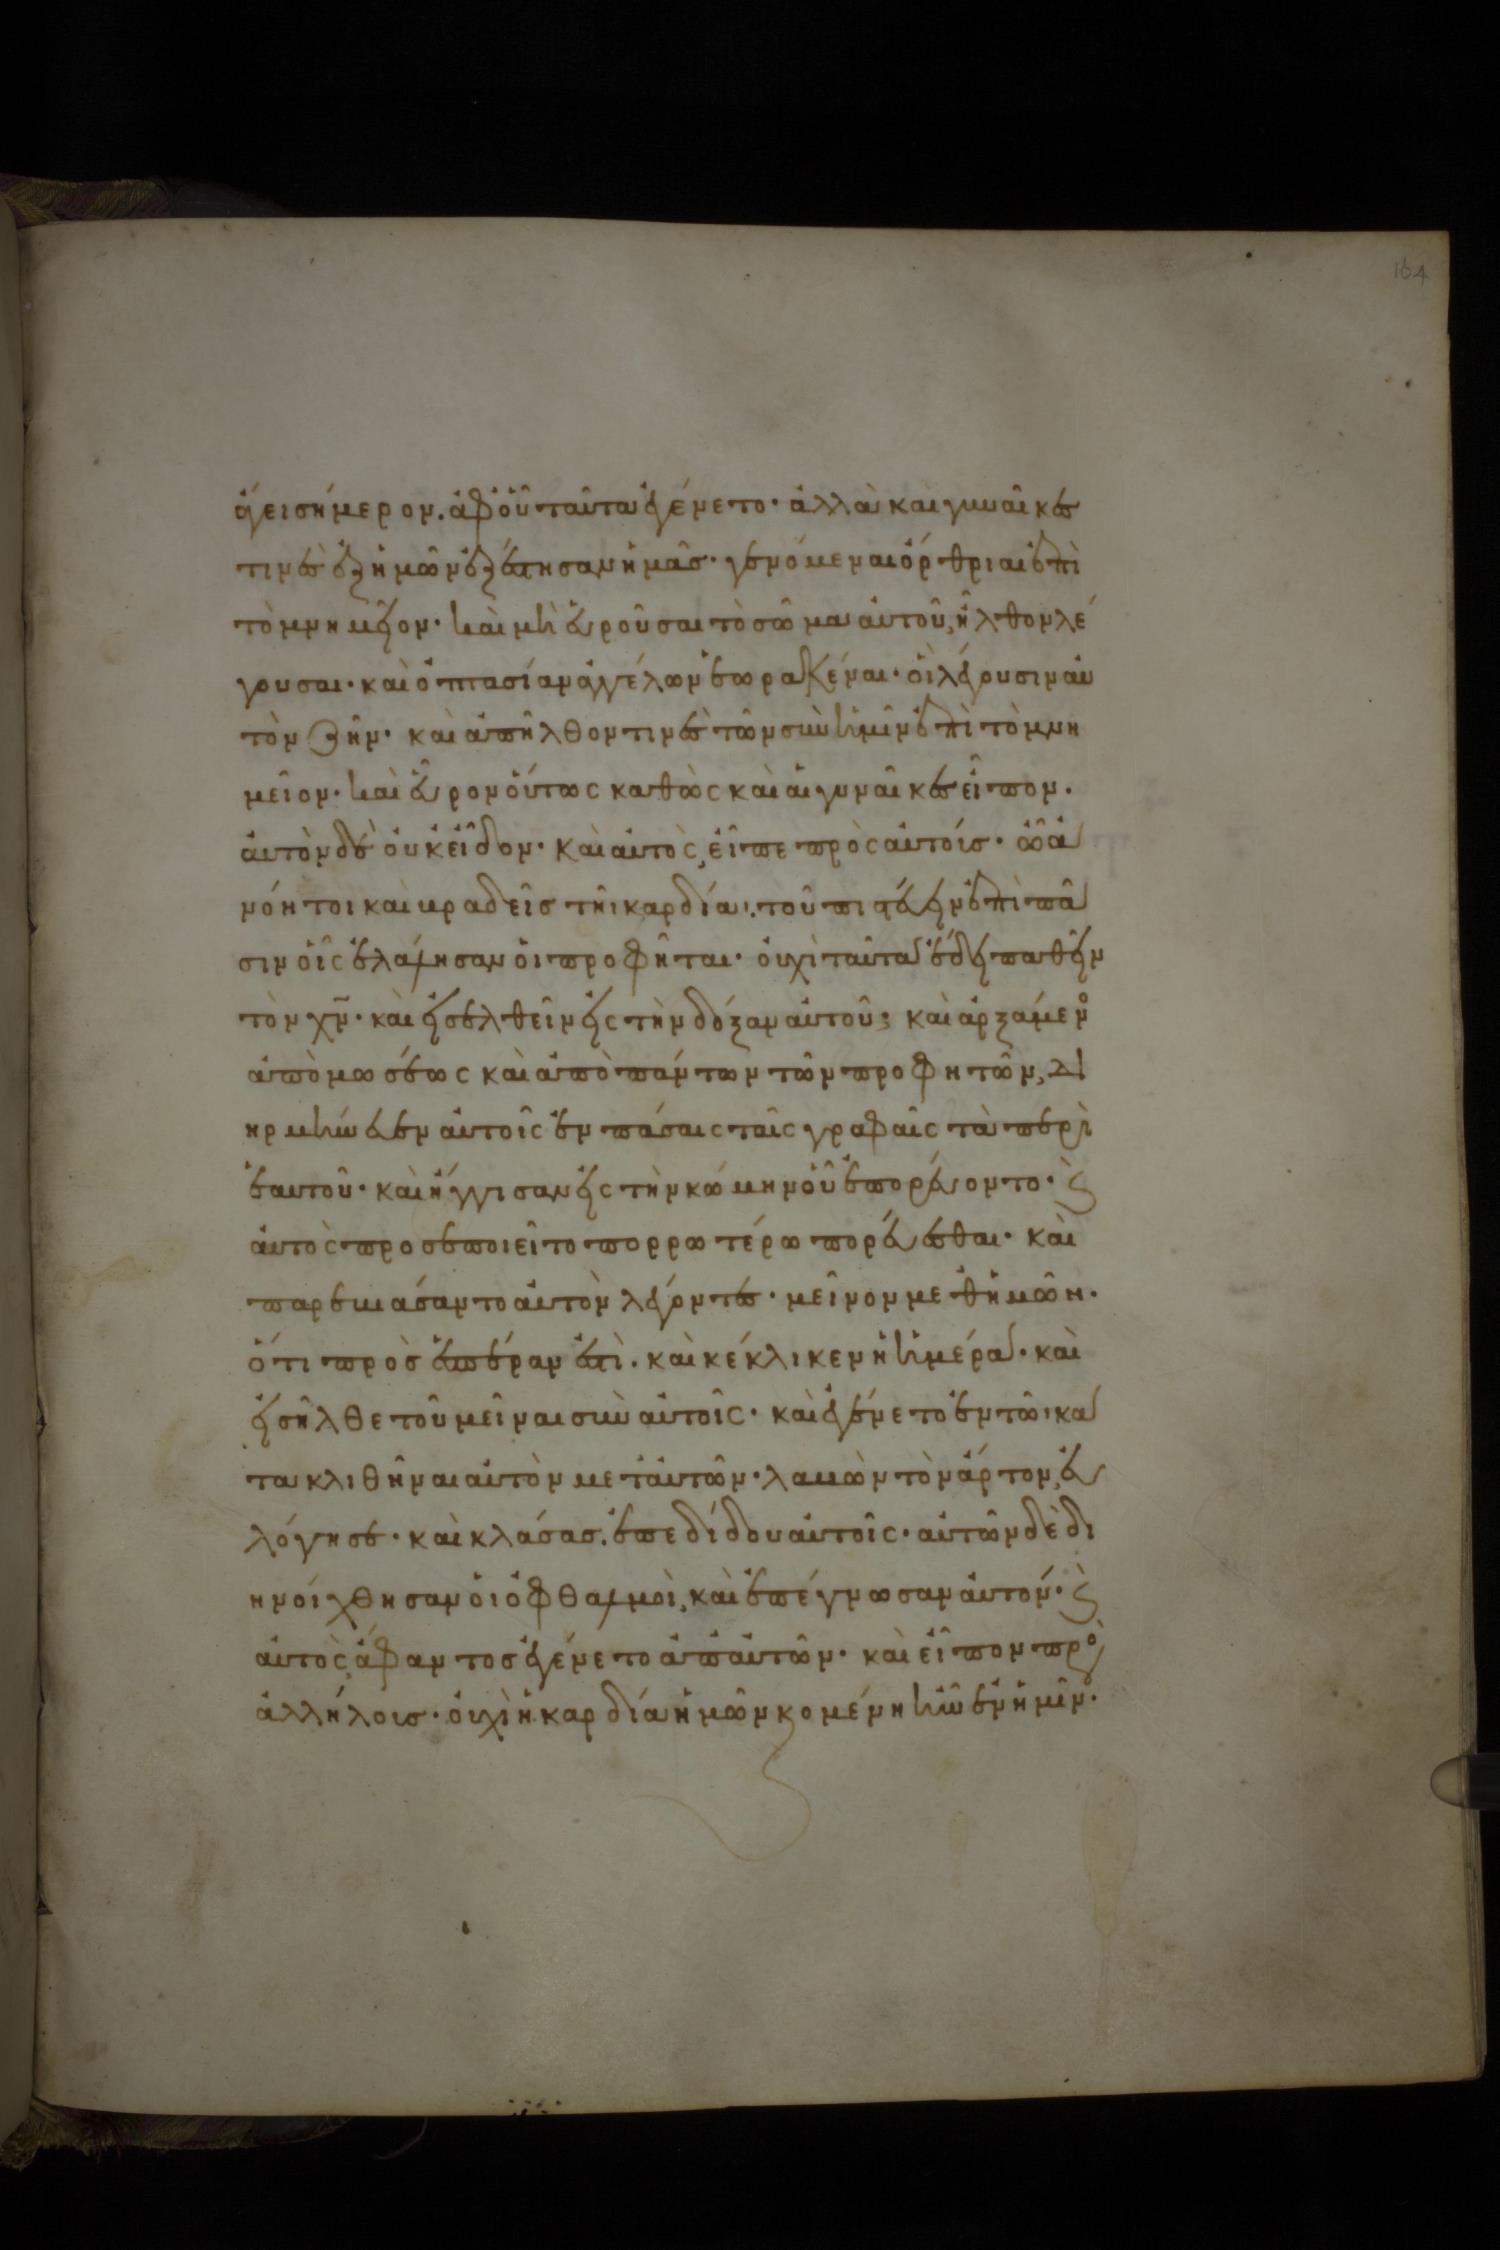 164
ἄγει σήμερον. ἀφ οὗ ταῦτα ἐγένετο· ἀλλὰ καὶ γυναῖκες
τινὲς ἐξ ἡμῶν ἐξέστησαν ἡμᾶς· γενόμεναι ὄρθριαι ἐπὶ
τὸ μνημεῖον· καὶ μὴ εὑροῦσαι τὸ σῶμα αὐτοῦ, ἦλθον λέ
γουσαι· καὶ ὀπτασίαν ἀγγέλων ἑωρακέναι· οἳ λέγουσιν αὐ
τὸν ζῆν· καὶ ἀπῆλθον τινὲς τῶν σὺν ἡμῖν ἐπὶ τὸ μνη
μεῖον· καὶ εὗρον οὕτως καθὼς καὶ αἱ γυναῖκες εἶπον.
αὐτὸν δὲ οὐκ εἶδον· καὶ αὐτὸς, εἶπε πρὸς αὐτούς· ὦ ἀ
νόητοι καὶ βραδεῖς τῆι καρδίαι. τοῦ πιστεύειν ἐπὶ πᾶ
σιν οἷς ἐλάλησαν οἱ προφῆται· οὐχὶ ταῦτα ἔδει παθεῖν
τὸν χν̄· καὶ εἰσελθεῖν εἰς τὴν δόξαν αὐτοῦ; καὶ ἀρξάμενο
ἀπὸ μωσέως καὶ ἀπὸ πάντων τῶν προφητῶν, δι
ηρμήνευεν αὐτοῖς ἐν πάσαις ταῖς γραφαῖς τὰ περὶ
ἑαυτοῦ· καὶ ἤγγισαν εἰς τὴν κώμην οὗ ἐπορεύοντο· ϗ
αὐτὸς προσεποιεῖτο πορρωτέρω πορεύεσθαι· καὶ
παρεβιάσαντο αὐτὸν λέγοντες· μεῖνον μεθ ἡμῶν.
ὅτι πρὸς ἑσπέραν ἐστὶ. καὶ κέκλικεν ἡ ἡμέρα· καὶ
εἰσῆλθε τοῦ μεῖναι σὺν αὐτοῖς· καὶ ἐγένετο ἐν τῶι κα
τακλιθῆναι αὐτὸν μετ αὐτῶν· λαβὼν τὸν ἄρτον, εὐ
λόγησε· καὶ κλάσας. ἐπεδίδου αὐτοῖς· αὐτῶν δὲ δι
ηνοίχθησαν οἱ ὀφθαλμοὶ, καὶ ἐπέγνωσαν αὐτόν· ϗ
αὐτὸς, ἄφαντος ἐγένετο ἀπ αὐτῶν· καὶ εἶπον πρὸ
ἀλλήλους· οὐχὶ ἡ καρδία ἡμῶν καιομένη ἦν ἐν ἡμῖν·